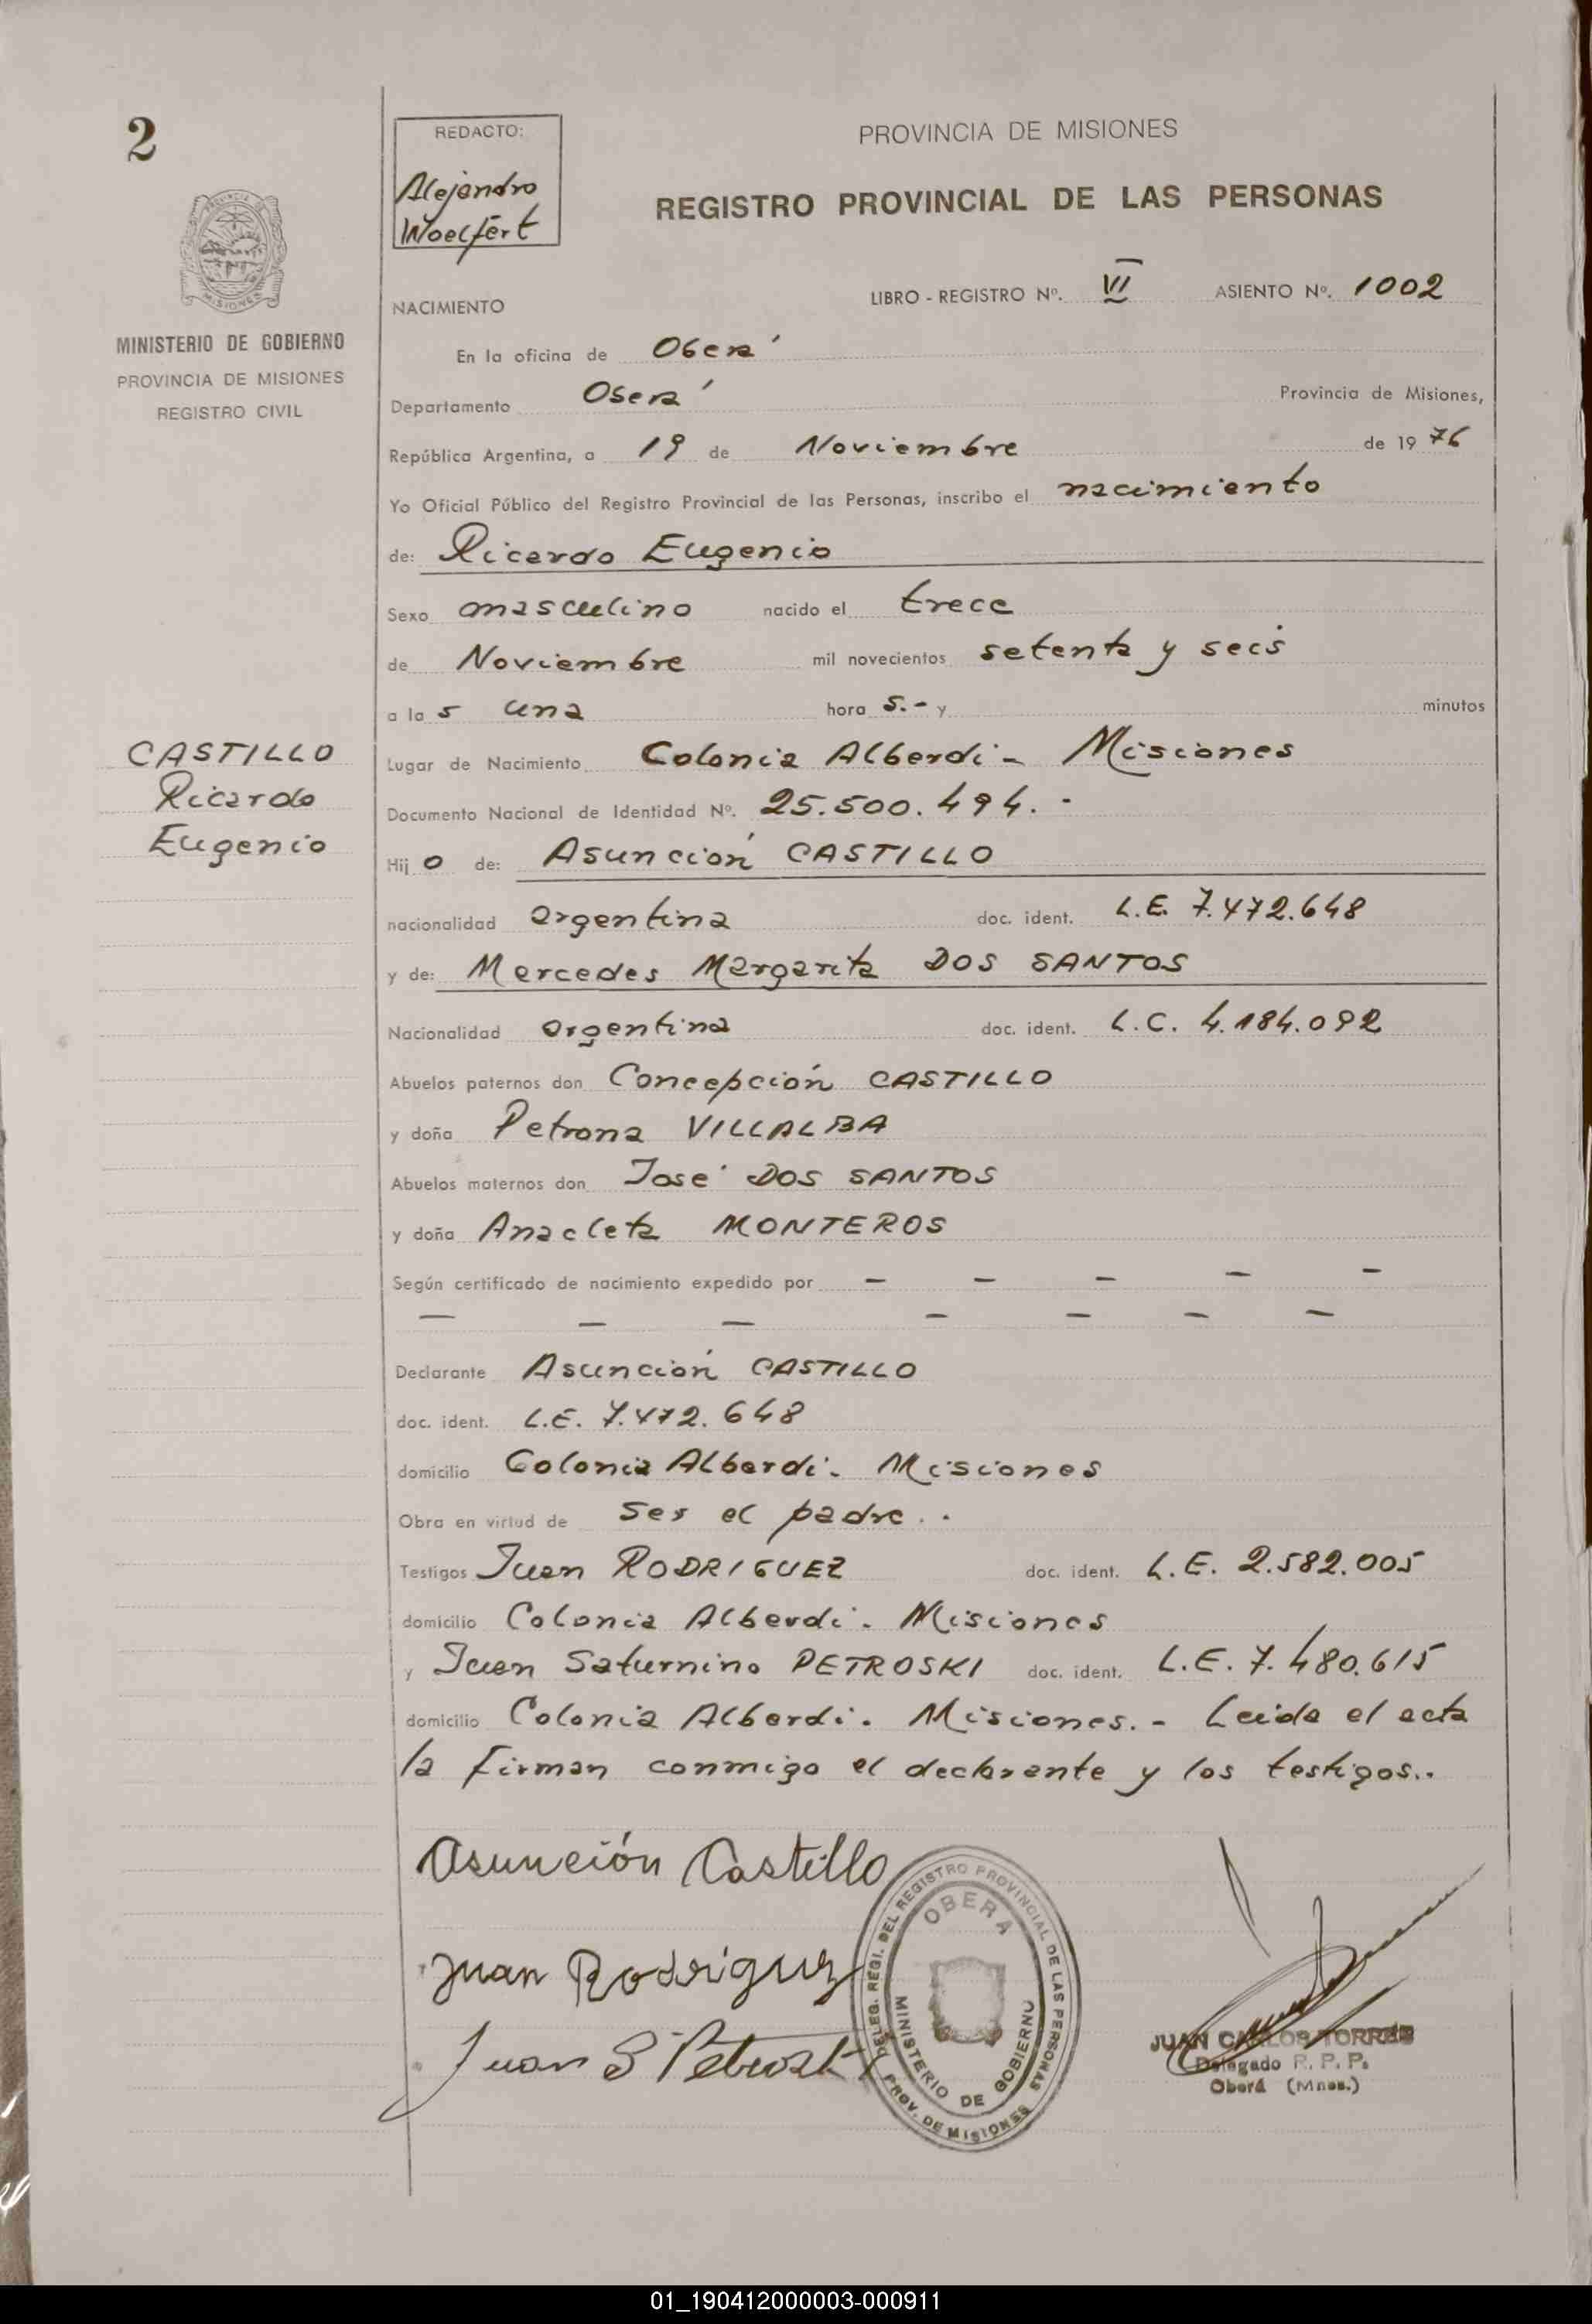 2
REDACTO:
Alejandro
Woelfert
PROVINCIA DE MISIONES
REGISTRO PROVINCIAL DE LAS PERSONAS
MINISTERIO DE GOBIERNO
PROVINCIA DE MISIONES
REGISTRO CIVIL
NACIMIENTO LIBRO - REGISTRO Nº. VII ASIENTO Nº. 1002
En la oficina de Oberá
Departamento Oberá Provincia de Misiones,
República Argentina, a 19 de Noviembre de 1976
Yo Oficial Público del Registro Provincial de las Personas, inscribo el nacimiento
de: Ricardo Eugenio
Sexo masculino nacido el trece
de Noviembre mil novecientos setenta y seis
a la s una hora s.- y minutos
CASTILLO
Ricardo
Eugenio
Lugar de Nacimiento Colonia Alberdi - Misiones
Documento Nacional de Identidad Nº. 25.500.494.-
Hij o de: Asunción CASTILLO
nacionalidad argentina doc. ident. L.E. 7.472.648
y de: Mercedes Margarita DOS SANTOS
Nacionalidad argentina doc. ident. L.C. 4.184.092
Abuelos paternos don Concepción CASTILLO
y doña Petrona VILLALBA
Abuelos maternos don José DOS SANTOS
y doña Anacleta MONTEROS
Según certificado de nacimiento expedido por - - - - -
- - - - - - -
Declarante Asunción CASTILLO
doc. ident. L.E. 7.472.648
domicilio Colonia Alberdi. Misiones
Obra en virtud de ser el padre..
Testigos Juan RODRIGUEZ doc. ident. L.E. 2.582.005
domicilio Colonia Alberdi. Misiones
y Juan Saturnino PETROSKI doc. ident. L.E. 7.480.615
domicilio Colonia Alberdi. Misiones.- Leida el acta
la firman conmigo el declarante y los testigos..
Asunción Castillo
Juan Rodriguez
Juan S Petroski
DELEG. REGI. DEL REGISTRO PROVINCIAL DE LAS PERSONAS
OBERA
MINISTERIO DE GOBIERNO
PROV. DE MISIONES
JUAN CARLOS TORRES
Delegado R. P. P.
Oberá (Mnes.)
01_190412000003-000911